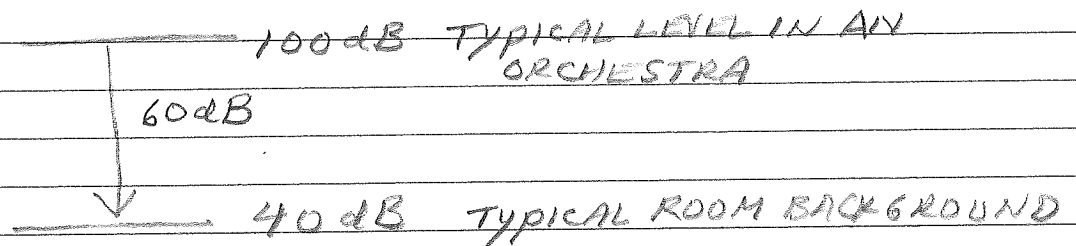 100dB TYPICAL LEVEL IN AN
ORCHESTRA
60dB
40 dB TYPICAL ROOM BACKGROUND